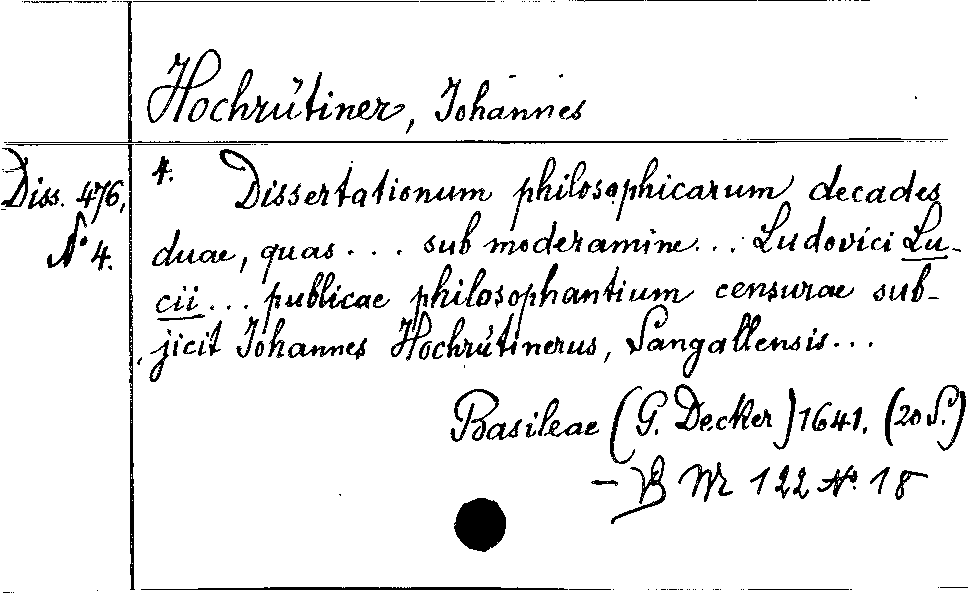 Hochrütiner, Johannes
Diss. 476,
No 4.
4. Dissertationum philosophicarum decades
duae, quas ... sub moderamine ... Ludovici Lu-
cii ... publicae philosophantium censurae sub-
jicit Johannes Hochrütinerus, Sangallensis ...
Basileae (G. Decker) 1641. (20 S.)
— VB Mr 122 No. 18